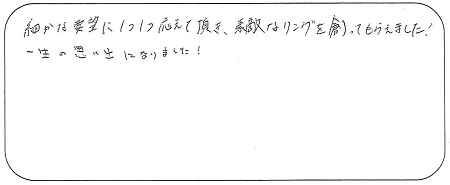 細かな要望に1つ1つ応えて頂き、素敵なリングを創ってもらえました!
一生の思い出になりました!